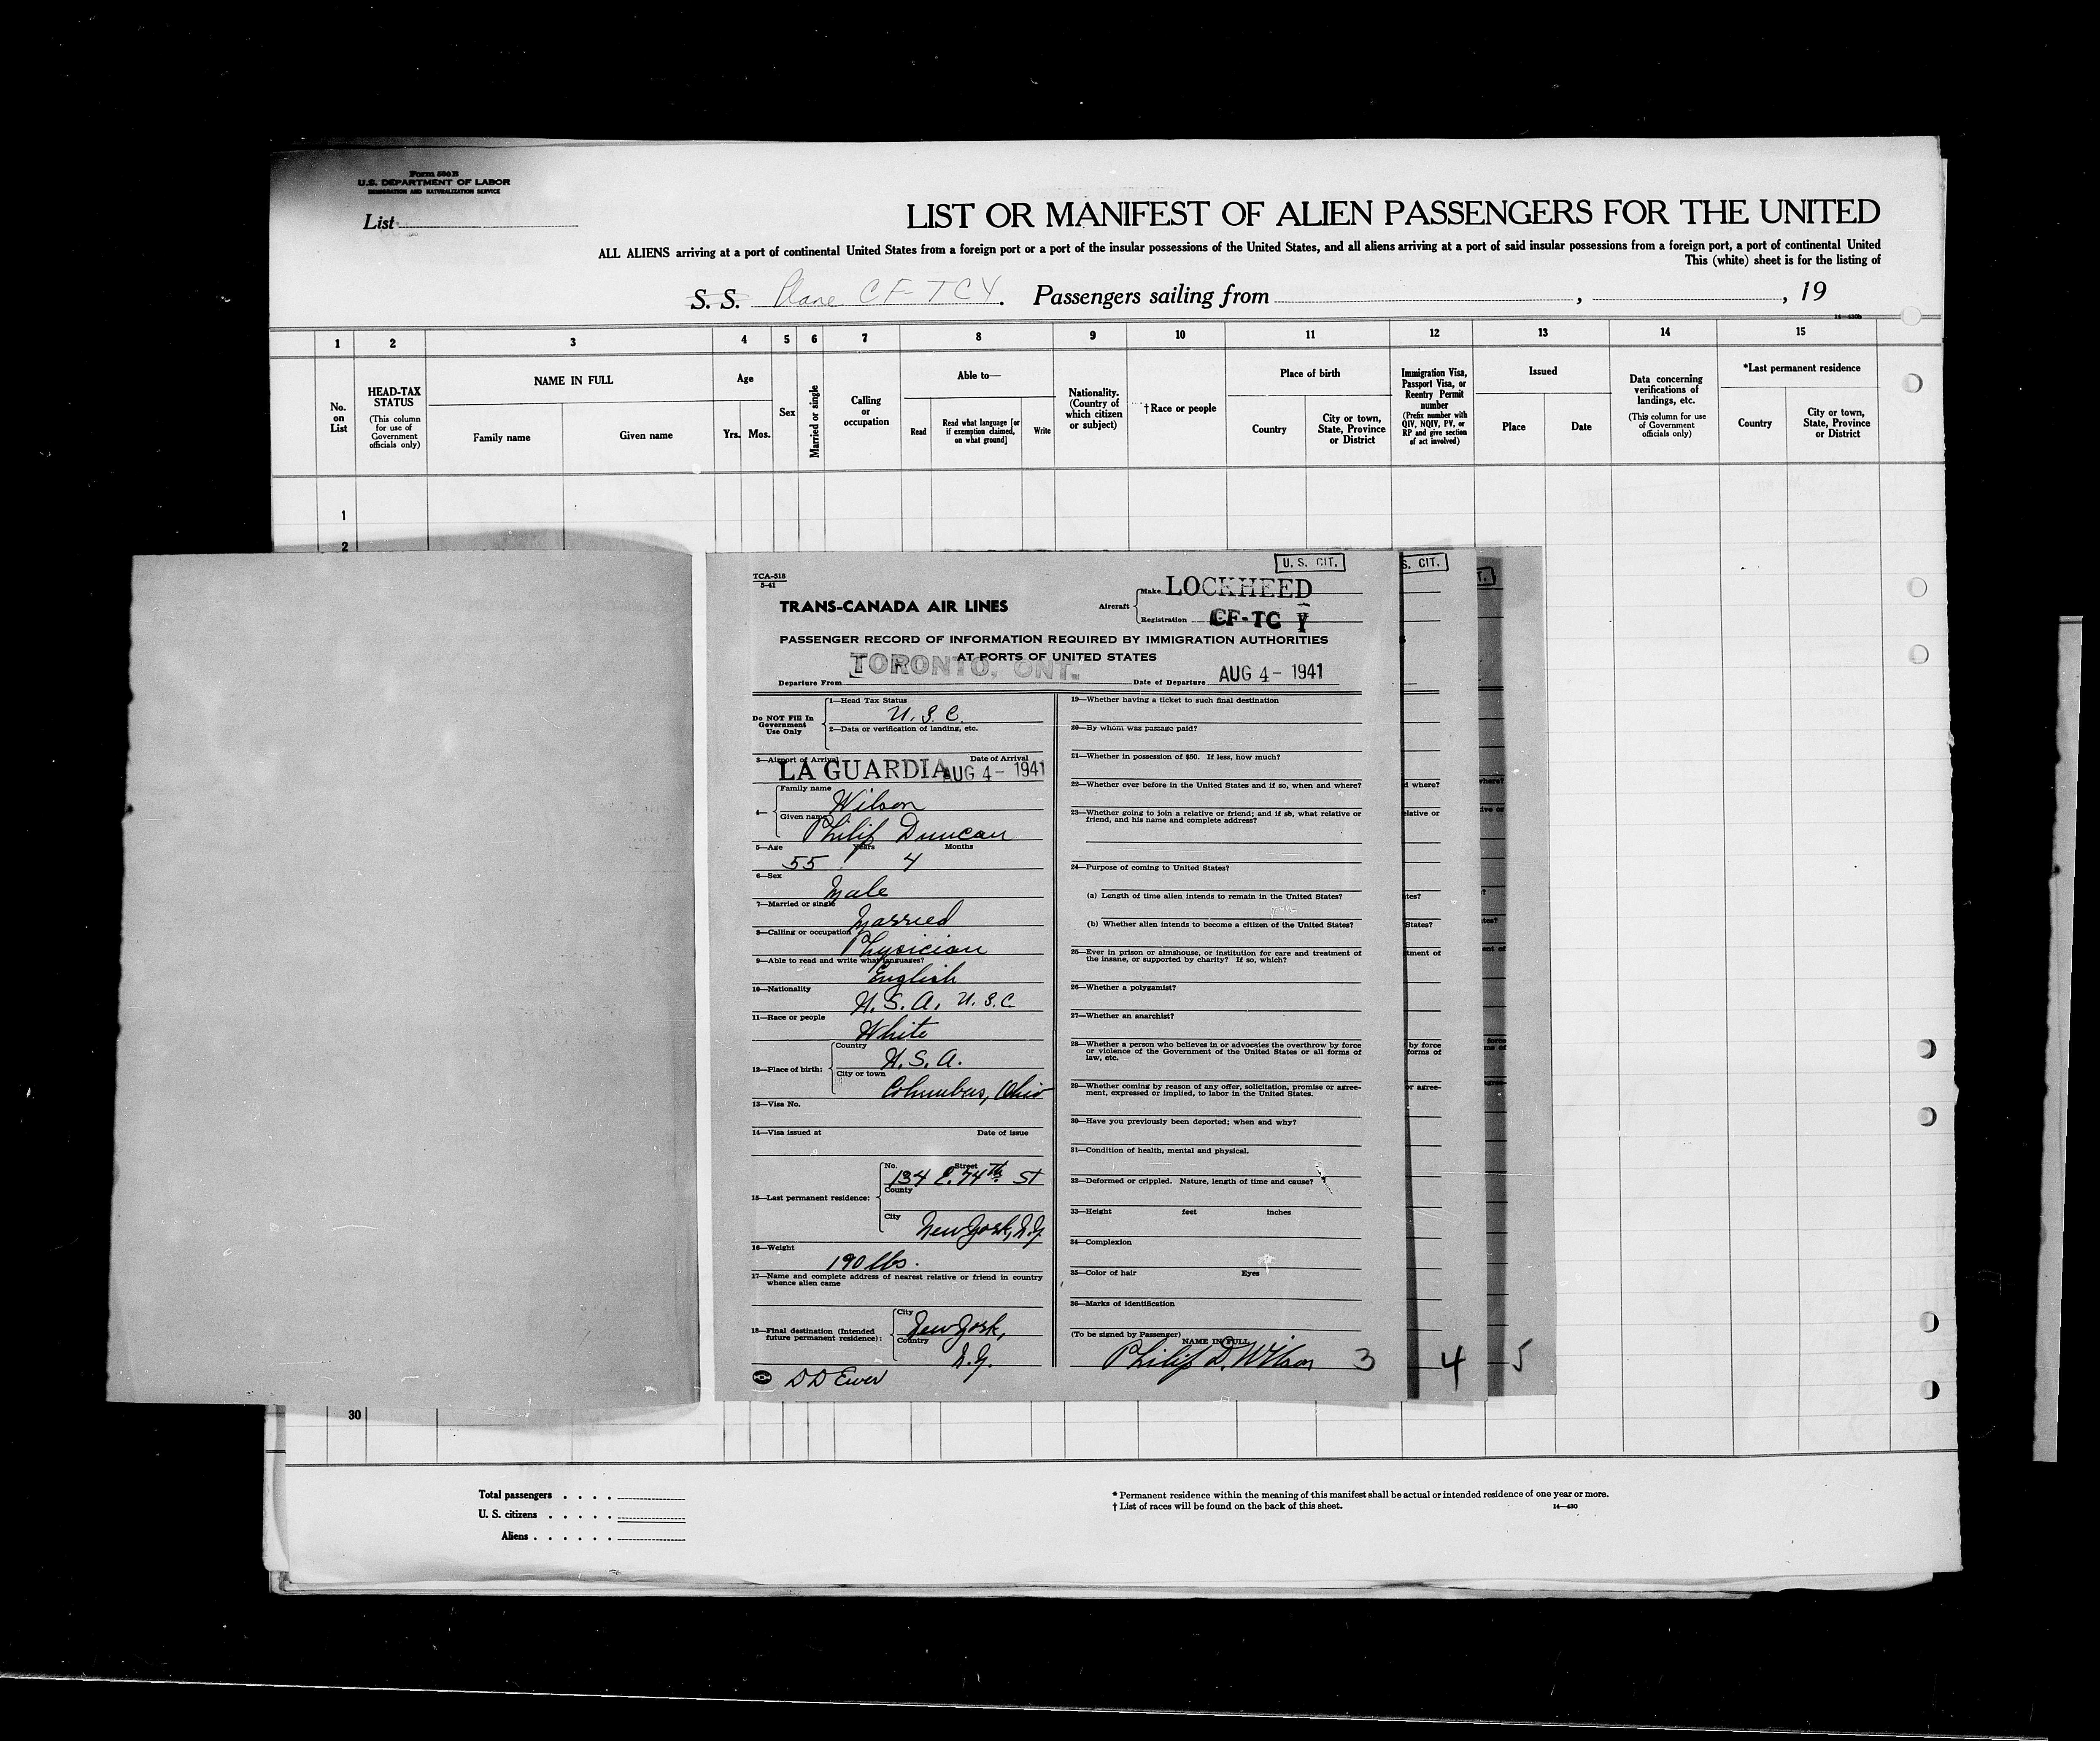 Form 500 B
U.S. DEPARTMENT OF LABOR
IMMIGRATION AND NATURALIZATION SERVICE
List
LIST OR MANIFEST OF ALIEN PASSENGERS FOR THE UNITED
ALL ALIENS arriving at a port of continental United States from a foreign port or a port of the insular possessions of the United States, and all aliens arriving at a port of said insular possessions from a foreign port, a port of continental United
This (white) sheet is for the listing of
S. S. Plane CF-TCY. Passengers sailing from , , 19
14—430b
1 2 3 4 5 6 7 8 9 10 11 12 13 14 15
No. on List
HEAD-TAX STATUS
(This column for use of Government officials only)
NAME IN FULL
Family name
Given name
Age
Yrs. Mos.
Sex
Married or single
Calling or occupation
Able to—
Read
Read what language [or if exemption claimed, on what ground]
Write
Nationality. (Country of which citizen or subject)
† Race or people
Place of birth
Country
City or town, State, Province or District
Immigration Visa, Passport Visa, or Reentry Permit number
(Prefix number with QIV, NQIV, PV, or RP and give section of act involved)
Issued
Place
Date
Data concerning verifications of landings, etc.
(This column for use of Government officials only)
*Last permanent residence
Country
City or town, State, Province or District
1
2
U. S. CIT.
S. CIT.
T.
TCA-518
5-41
TRANS-CANADA AIR LINES
Aircraft
Make LOCKHEED
Registration CF-TC Y
PASSENGER RECORD OF INFORMATION REQUIRED BY IMMIGRATION AUTHORITIES
AT PORTS OF UNITED STATES
Departure From TORONTO, ONT. Date of Departure AUG 4- 1941
Do NOT Fill In Government Use Only
1—Head Tax Status
U.S.C.
2—Data or verification of landing, etc.
3—Airport of Arrival Date of Arrival
LA GUARDIA AUG 4- 1941
4— Family name
Wilson
Given name
Philip Duncan
5—Age Years Months
55 4
6—Sex
Male
7—Married or single
Married
8—Calling or occupation
Physician
9—Able to read and write what languages?
English
10—Nationality
U.S.A. U.S.C
11—Race or people
White
12—Place of birth:
Country
U.S.A.
City or town
Columbus, Ohio
13—Visa No.
14—Visa issued at Date of issue
15—Last permanent residence:
No. Street
134 E. 74th St
County
City
New York, N.Y
16—Weight
190 lbs.
17—Name and complete address of nearest relative or friend in country
whence alien came
18—Final destination (Intended
future permanent residence):
City
New York,
Country
N.Y.
19—Whether having a ticket to such final destination
20—By whom was passage paid?
21—Whether in possession of $50. If less, how much?
22—Whether ever before in the United States and if so, when and where?
23—Whether going to join a relative or friend; and if so, what relative or
friend, and his name and complete address?
24—Purpose of coming to United States?
(a) Length of time alien intends to remain in the United States?
(b) Whether alien intends to become a citizen of the United States?
25—Ever in prison or almshouse, or institution for care and treatment of
the insane, or supported by charity? If so, which?
26—Whether a polygamist?
27—Whether an anarchist?
28—Whether a person who believes in or advocates the overthrow by force
or violence of the Government of the United States or all forms of
law, etc.
29—Whether coming by reason of any offer, solicitation, promise or agree-
ment, expressed or implied, to labor in the United States.
30—Have you previously been deported; when and why?
31—Condition of health, mental and physical.
32—Deformed or crippled. Nature, length of time and cause?
33—Height feet inches
34—Complexion
35—Color of hair Eyes
36—Marks of identification
(To be signed by Passenger)
NAME IN FULL
Philip D. Wilson 3
d where?
elative or
tes?
States?
tment of
by force
forms of
or agree-
4
where?
ive or
?
tes?
ent of
force
ms of
agree-
5
30
Total passengers
U. S. citizens
Aliens
* Permanent residence within the meaning of this manifest shall be actual or intended residence of one year or more.
† List of races will be found on the back of this sheet.
14—430